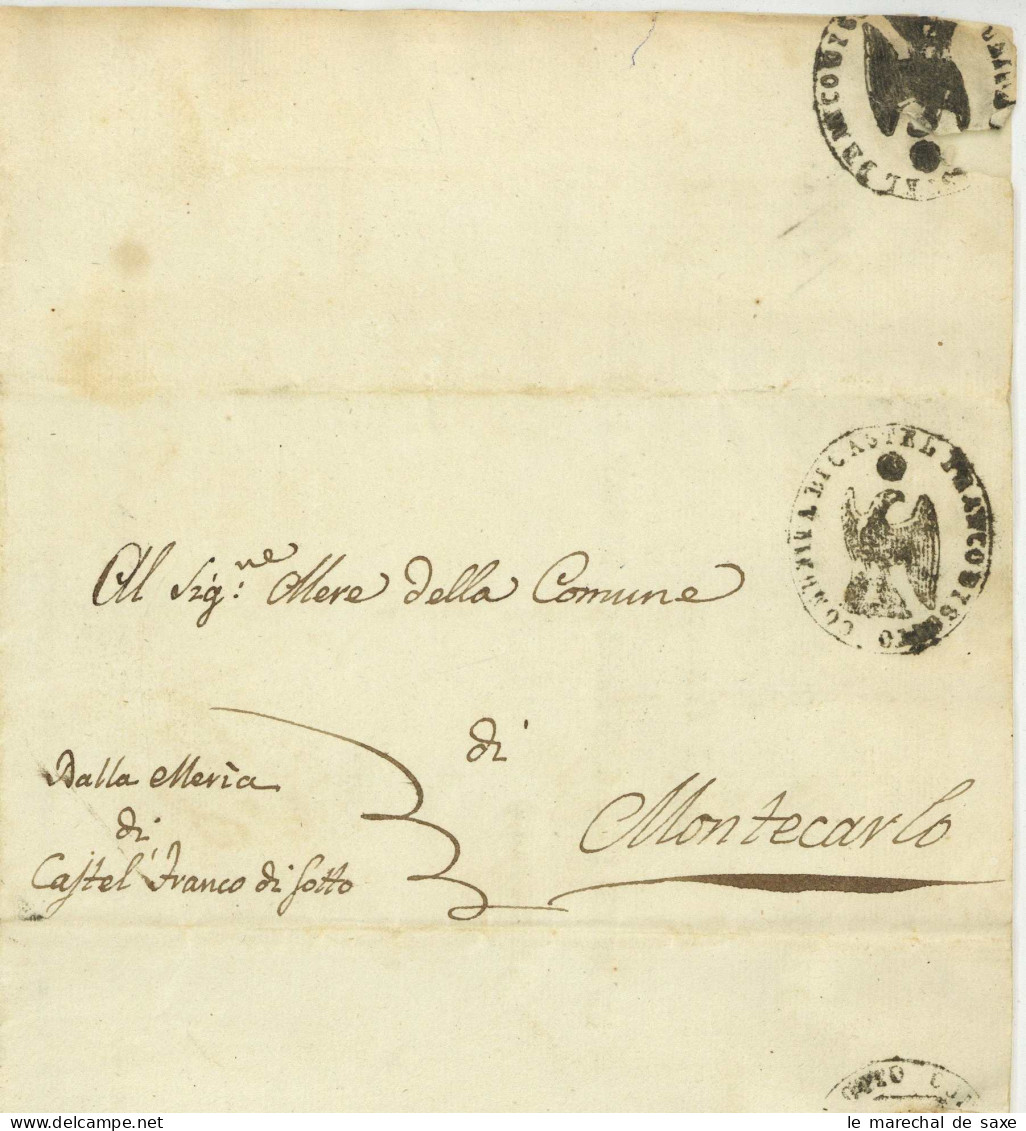 COMUNITA DI CASTEL FRANCO DI SOTTO
Al Sig:ne Mere della Comune
di
Montecarlo
Dalla Merìa
di
Castel Franco di Sotto
le marechal de saxe